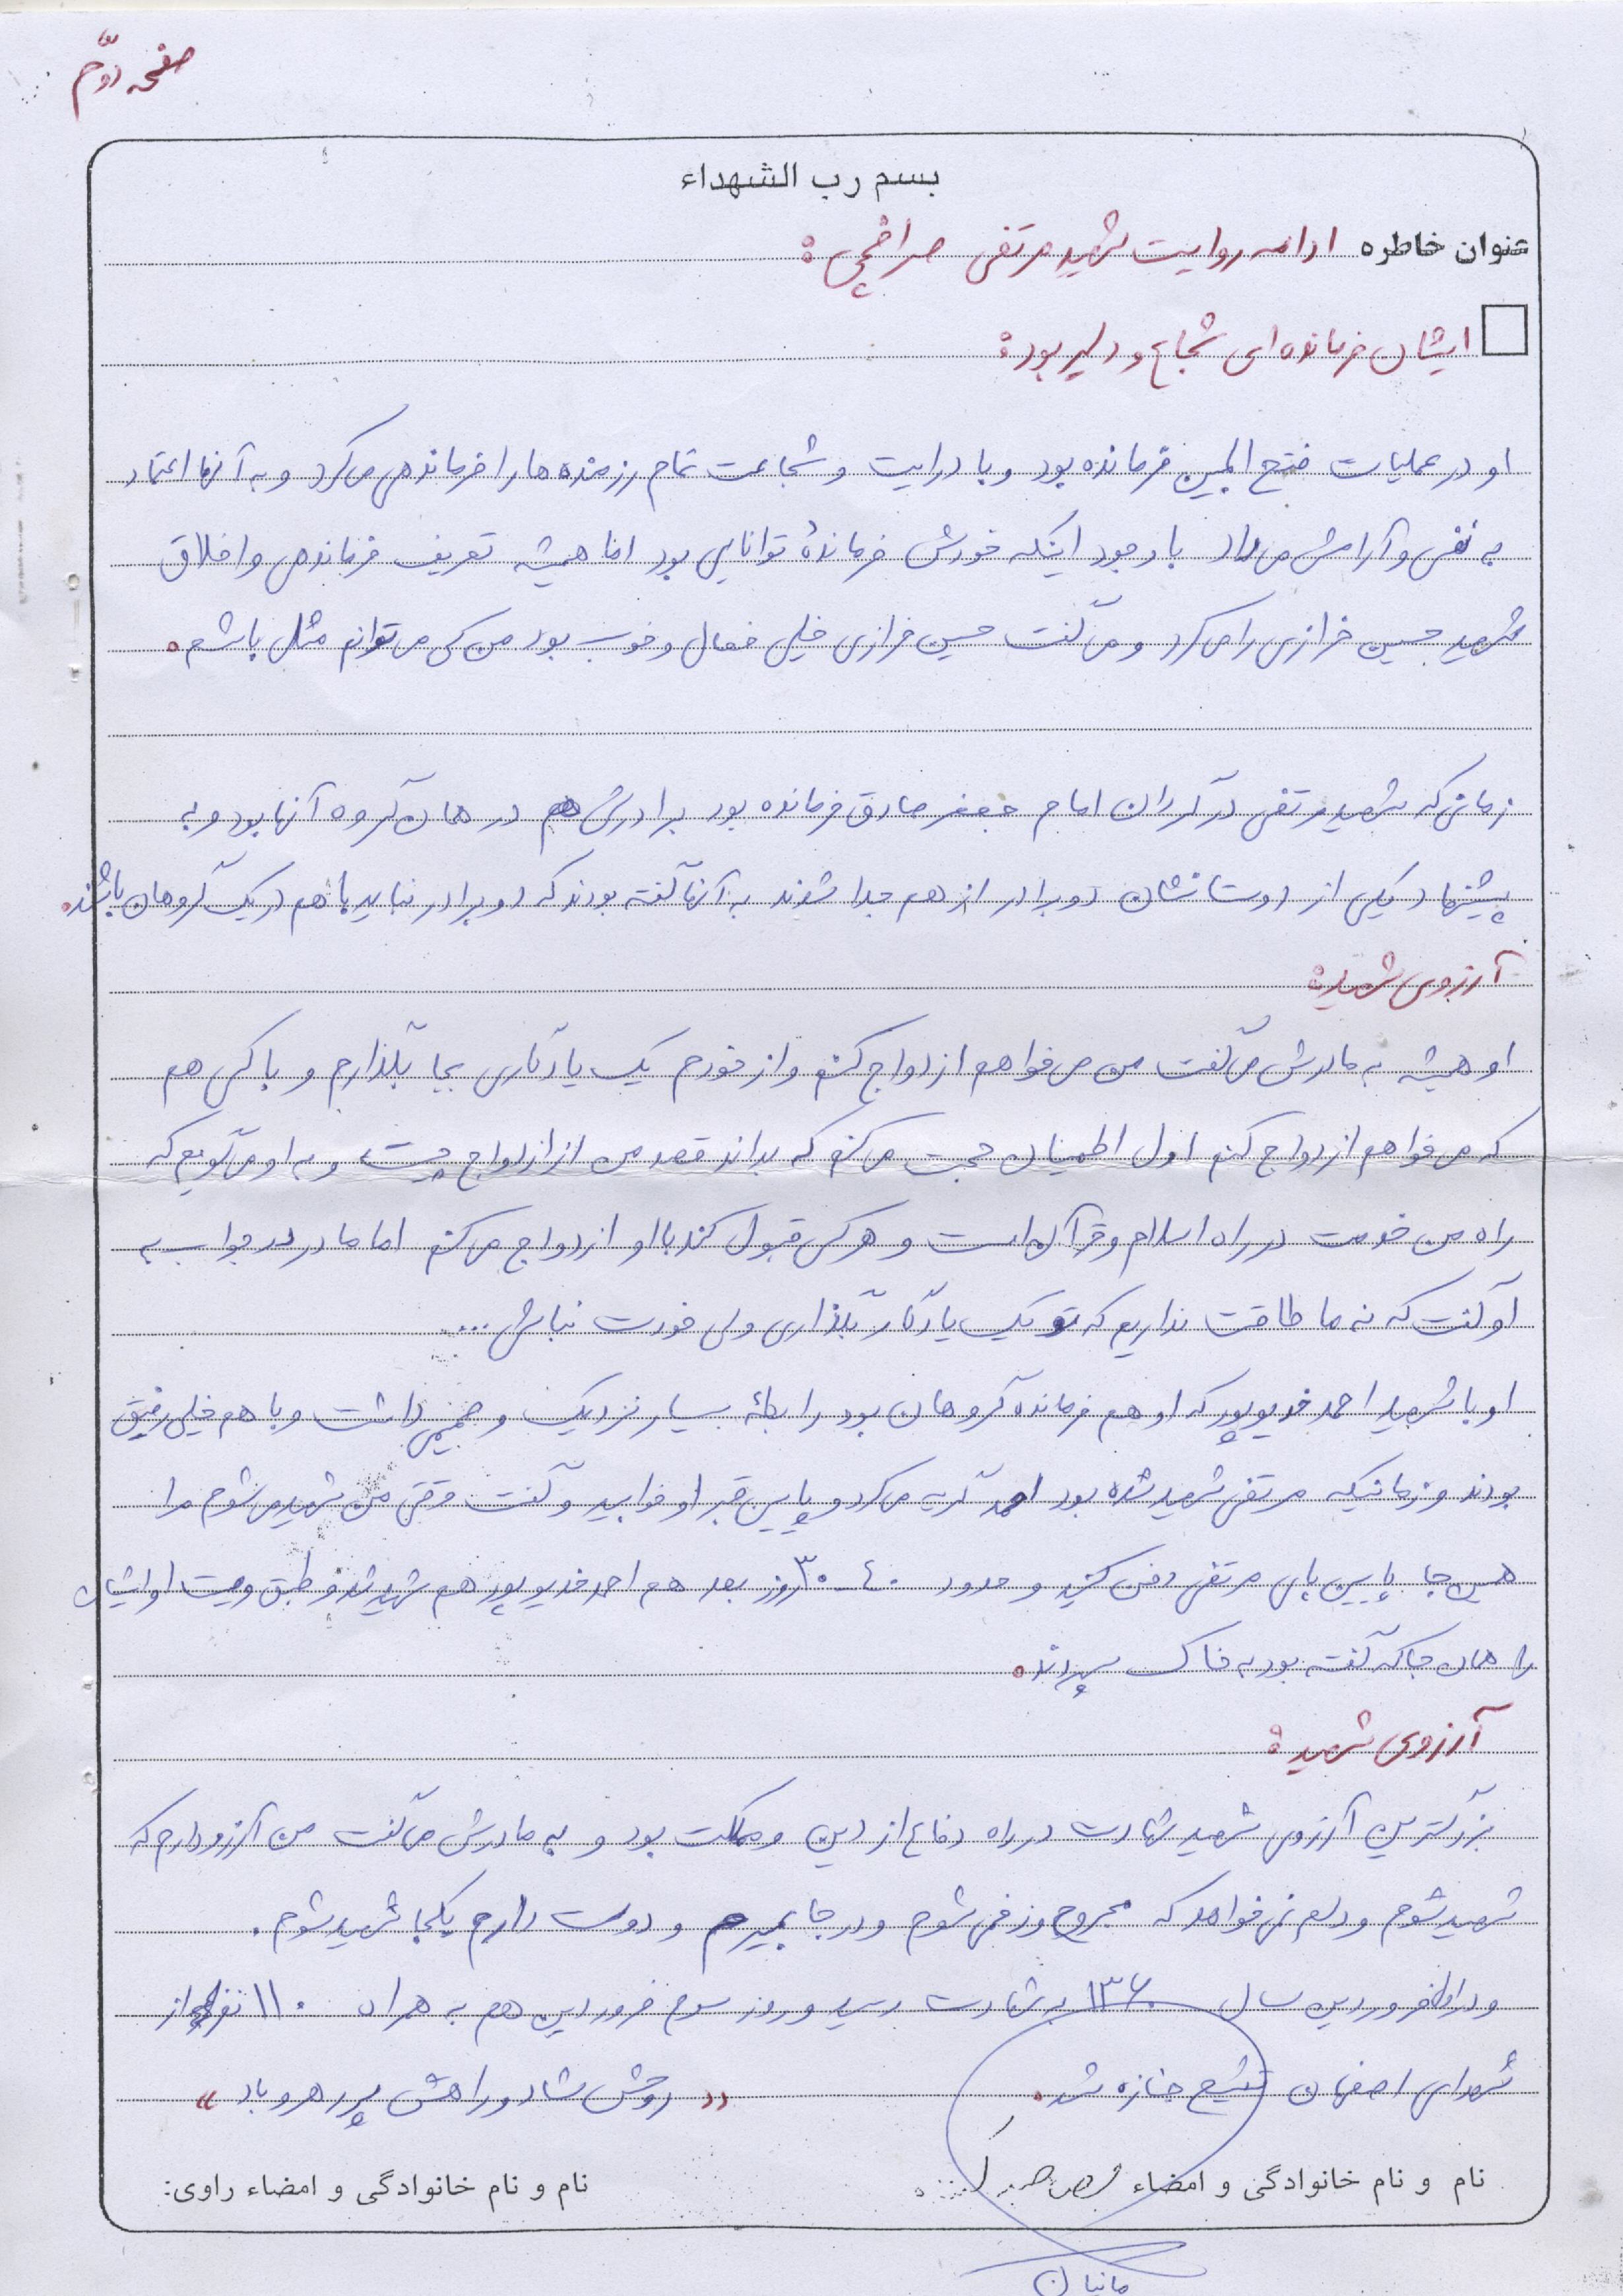 صفحه دوّم
بسم رب الشهداء
عنوان خاطره ادامه روایت شهید مرتضی صرافچی :
ایشان فرمانده ای شجاع و دلیر بود :
او در عملیات فتح المبین فرمانده بود و با درایت و شجاعت تمام رزمنده ها را فرماندهی می کرد و به آنها اعتماد
به نفس و آرامش می داد با وجود اینکه خودش فرماندهٔ توانایی بود اما همیشه تعریف فرماندهی و اخلاق
شهید حسین خرازی را می کرد و می گفت حسین خرازی خیلی فعال و خوب بود من کی می توانم مثل باشم .
زمانی که شهید مرتضی در گردان امام جعفر صادق فرمانده بود برادرش هم در همان گروه آنها بود و به
پیشنهاد یکی از دوستانشان دو برادر از هم جدا شدند به آنها گفته بودند که دو برادر نباید با هم در یک گروهان باشند .
آرزوی شهید :
او همیشه به مادرش می گفت من می خواهم ازدواج کنم و از خودم یک یادگاری بجا بگذارم و با کسی هم
که می خواهم ازدواج کنم اول اطمینان حجت می کنم که بداند قصد من از ازدواج چیست و به او می گویم که
راه من خدمت در راه اسلام و قرآن است و هر کس قبول کند با او ازدواج می کنم اما مادر در جواب به
او گفت که نه ما طاقت نداریم که تو یک یادگار بگذاری ولی خودت نباشی ...
او با شهید احمد خدیوپور که او هم فرمانده گروهان بود رابطهٔ بسیار نزدیک و صمیمی داشت و با هم خیلی رفیق
بودند و زمانیکه مرتضی شهید شده بود احمد گریه می کرد و پایین قبر او خوابید و گفت وقتی من شهید می شوم مرا
همین جا پایین پای مرتضی دفن کنید و حدود ۴۰-۳۰ روز بعد هم احمد خدیوپور هم شهید شد و طبق وصیت او ایشان
را همان جا که گفته بود به خاک سپردند .
آرزوی شهید :
بزرگترین آرزوی شهید شهادت در راه دفاع از دین و مملکت بود و به مادرش می گفت من آرزو دارم که
شهید شوم و دلم نمی خواهد که مجروح و زخمی شوم و در جا بمیرم و دوست دارم یکجا شهید شوم .
و در اول فروردین سال ۱۳۶۰ به شهادت رسید و روز سوم فروردین هم به همراه ۱۱۰ نفر از
شهدای اصفهان تشییع جنازه شد . «روحش شاد و راهش پر رهرو باد»
نام و نام خانوادگی و امضاء
نام و نام خانوادگی و امضاء راوی: